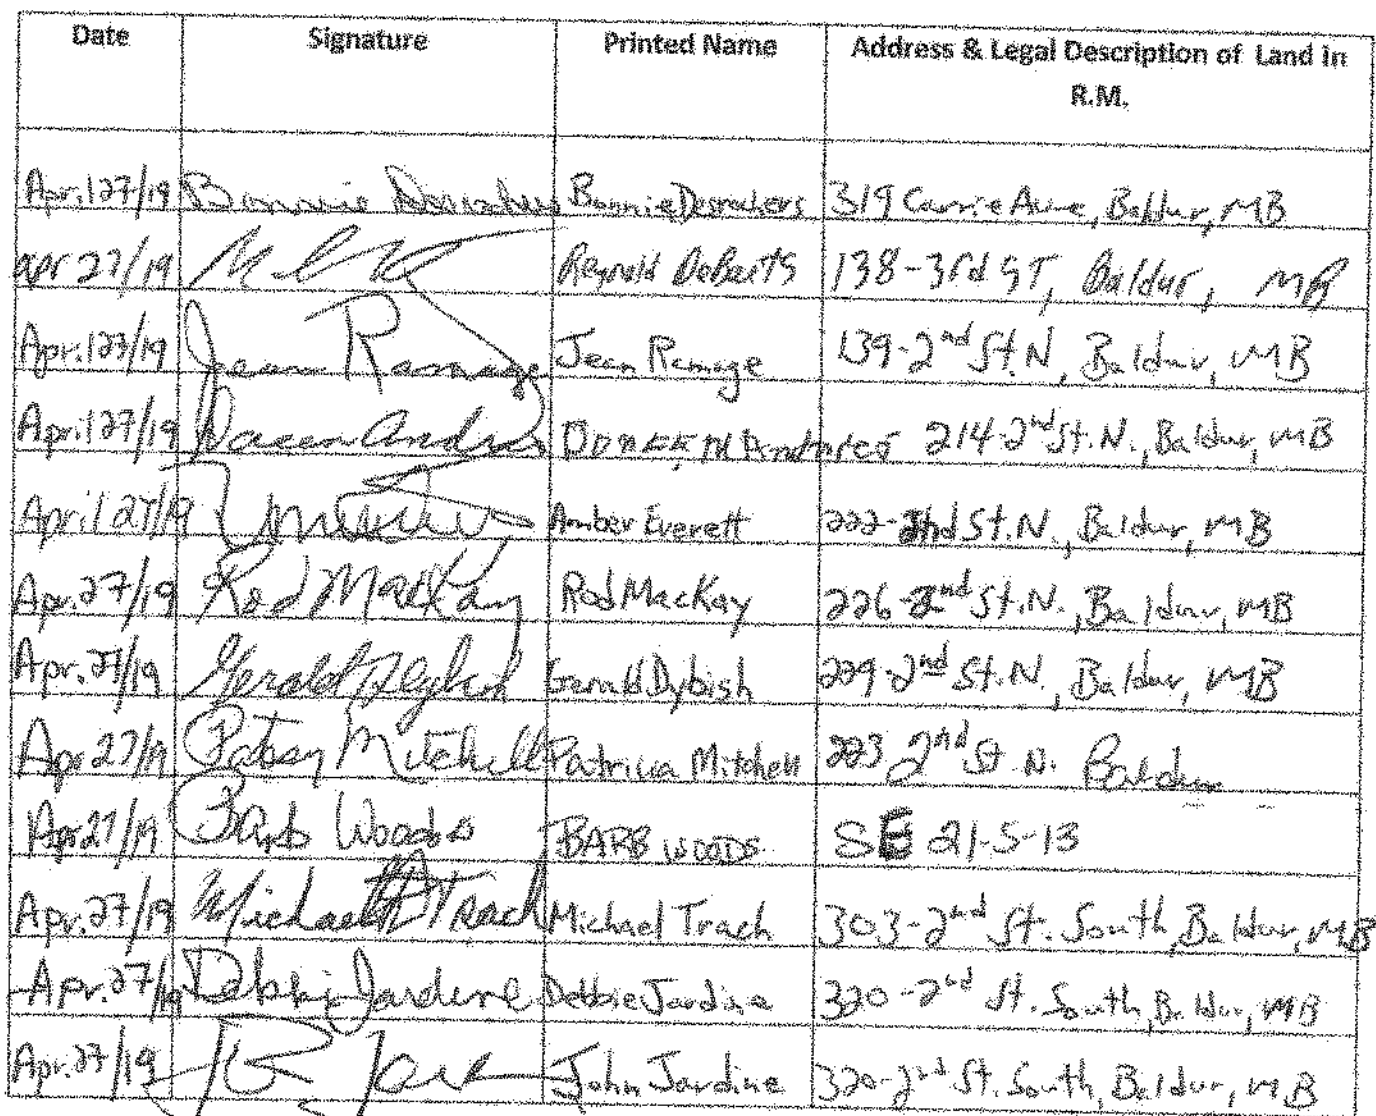 Date Signature Printed Name Address & Legal Description of Land in
R.M.
April 27/19 Bonnie Desrochers Bonnie Desrochers 319 Carrie Ave, Baldur, MB
Apr 27/19 Reynold DeBaets 138-3rd ST, Baldur, MB
April 27/19 Jean Ramage Jean Ramage 139-2nd St. N, Baldur, MB
April 27/19 214-2nd St. N., Baldur, MB
April 27/19 Amber Everett 222-2nd St. N., Baldur, MB
Apr. 27/19 Rod MacKay Rod MacKay 226-2nd St. N., Baldur, MB
Apr. 27/19 Gerald Dybish Gerald Dybish 229-2nd St. N., Baldur, MB
Apr 27/19 Patsy Mitchell Patricia Mitchell 223 2nd St. N. Baldur
Apr 27/19 Barb Woods BARB WOODS SE 21-5-13
Apr. 27/19 Michael Trach Michael Trach 303-2nd St. South, Baldur, MB
Apr. 27/19 Debbie Jardine Debbie Jardine 320-2nd St. South, Baldur, MB
Apr. 27/19 John Jardine 320-2nd St. South, Baldur, MB